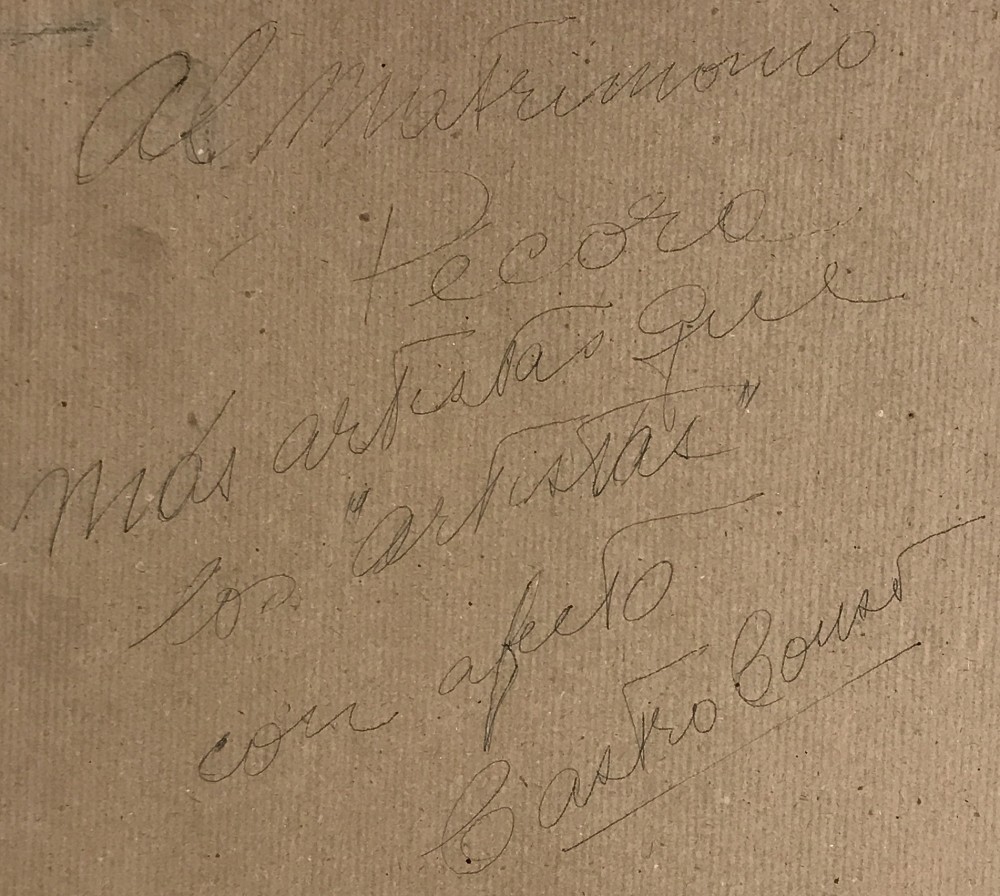 Al Matrimonio
Pecora
más artistas que
los "artistas"
con afecto
Castro Couso